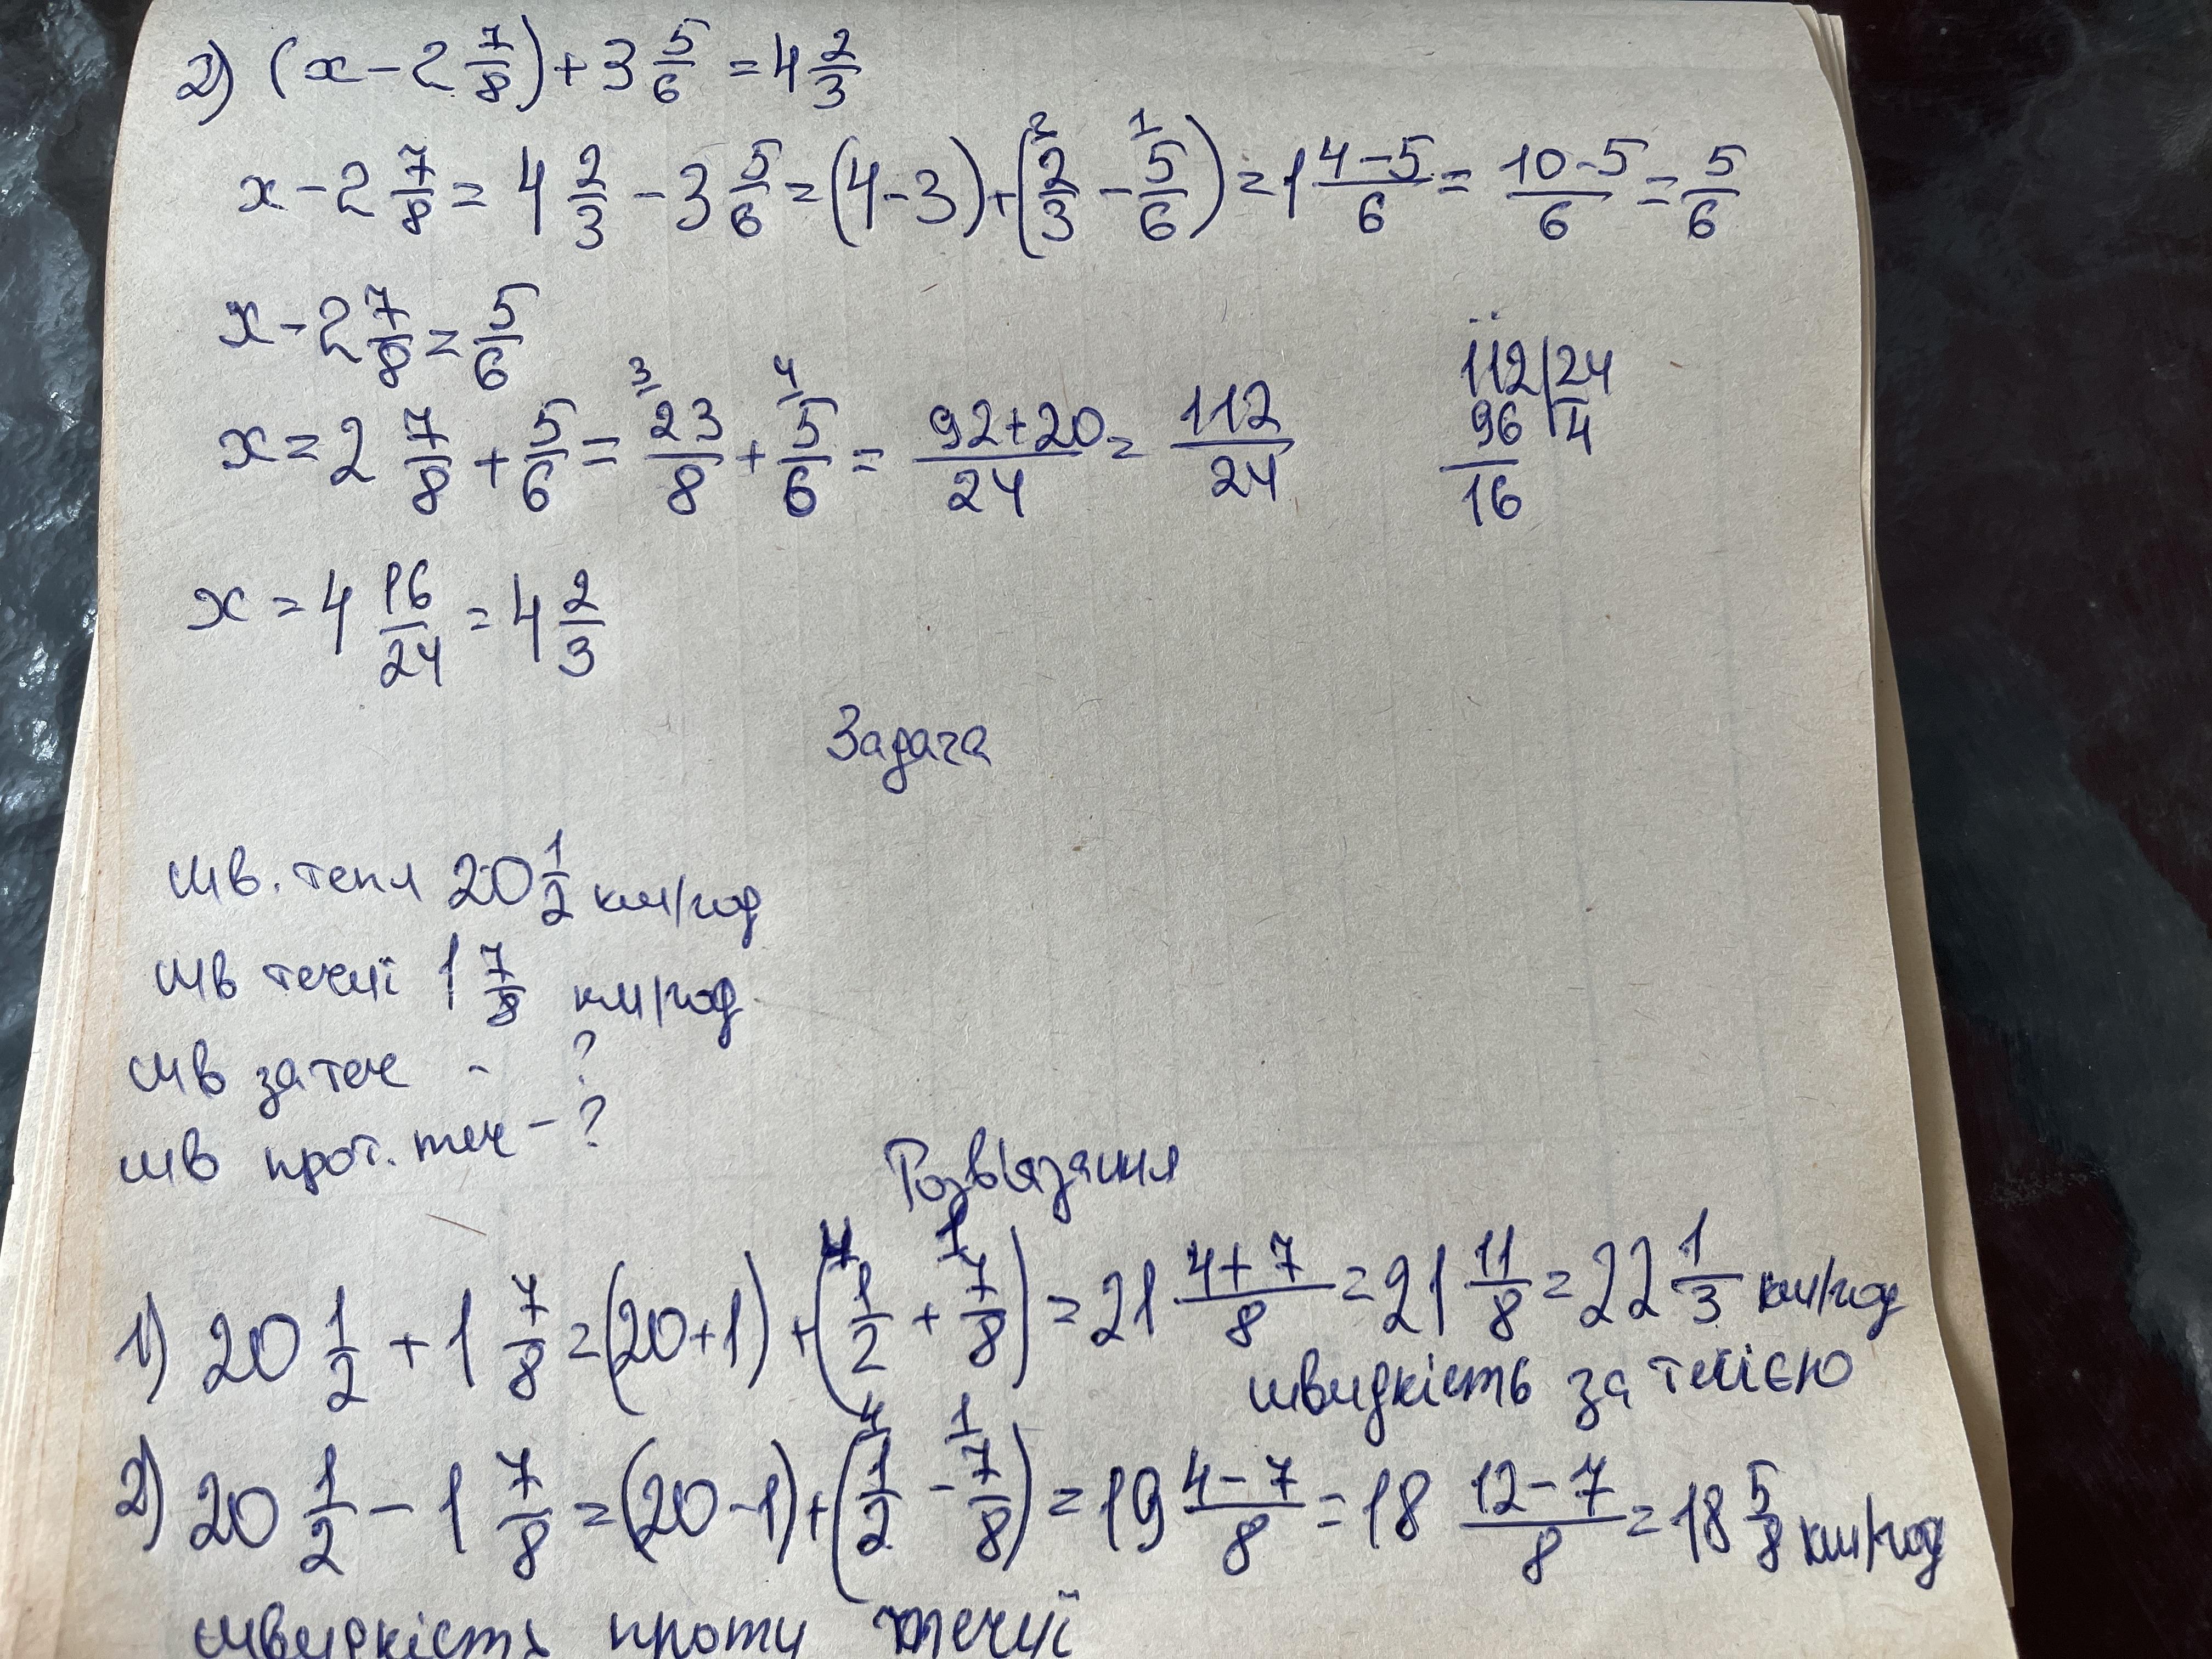 2) (x - 2 7/8) + 3 5/6 = 4 2/3
x - 2 7/8 = 4 2/3 - 3 5/6 = (4 - 3) + (2/3 - 5/6) = 1 4-5/6 = 10-5/6 = 5/6
x - 2 7/8 = 5/6
x = 2 7/8 + 5/6 = 23/8 + 5/6 = 92+20/24 = 112/24
112 | 24
96 | 4
16
x = 4 16/24 = 4 2/3
Задача
шв. тепл 20 1/2 км/год
шв течії 1 7/8 км/год
шв за теч - ?
шв прот. теч - ?
Розв'язання
1) 20 1/2 + 1 7/8 = (20+1) + (1/2 + 7/8) = 21 4+7/8 = 21 11/8 = 22 1/3 км/год
швидкість за течією
2) 20 1/2 - 1 7/8 = (20 - 1) + (1/2 - 7/8) = 19 4-7/8 = 18 12-7/8 = 18 5/8 км/год
швидкість проти течії